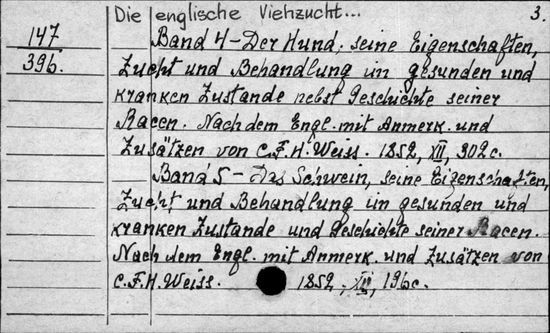 Die englische Viehzucht... 3.
147
396.
Band 4 - Der Hund, seine Eigenschaften,
Zucht und Behandlung im gesunden und
kranken Zustande nebst Geschichte seiner
Racen. Nach dem Engl. mit Anmerk. und
Zusätzen von C.F.H. Weiss. 1852, XII, 302c.
Band 5 - Das Schwein, seine Eigenschaften,
Zucht und Behandlung im gesunden und
kranken Zustande und Geschichte seiner Racen.
Nach dem Engl. mit Anmerk. und Zusätzen von
C.F.H. Weiss. 1852, XII, 196c.